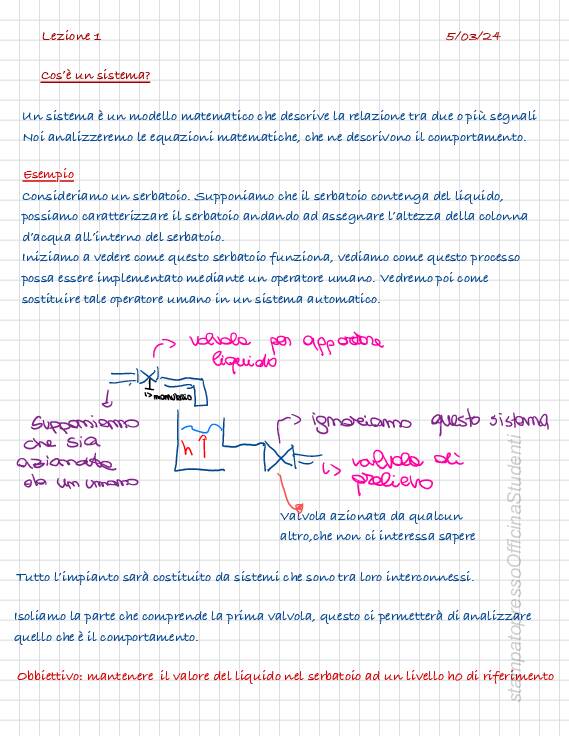 Lezione 1
5/03/24
Cos'è un sistema?
Un sistema è un modello matematico che descrive la relazione tra due o più segnali
Noi analizzeremo le equazioni matematiche, che ne descrivono il comportamento.
Esempio
Consideriamo un serbatoio. Supponiamo che il serbatoio contenga del liquido,
possiamo caratterizzare il serbatoio andando ad assegnare l'altezza della colonna
d'acqua all'interno del serbatoio.
Iniziamo a vedere come questo serbatoio funziona, vediamo come questo processo
possa essere implementato mediante un operatore umano. Vedremo poi come
sostituire tale operatore umano in un sistema automatico.
valvola per apportare
liquido
manubrio
Supponiamo
che sia
azionata
da un umano
h
ignoriamo questo sistema
valvola di
prelievo
Valvola azionata da qualcun
altro,che non ci interessa sapere
Tutto l'impianto sarà costituito da sistemi che sono tra loro interconnessi.
Isoliamo la parte che comprende la prima valvola, questo ci permetterà di analizzare
quello che è il comportamento.
Obbiettivo: mantenere il valore del liquido nel serbatoio ad un livello h0 di riferimento
stampatopressoOfficinaStudenti